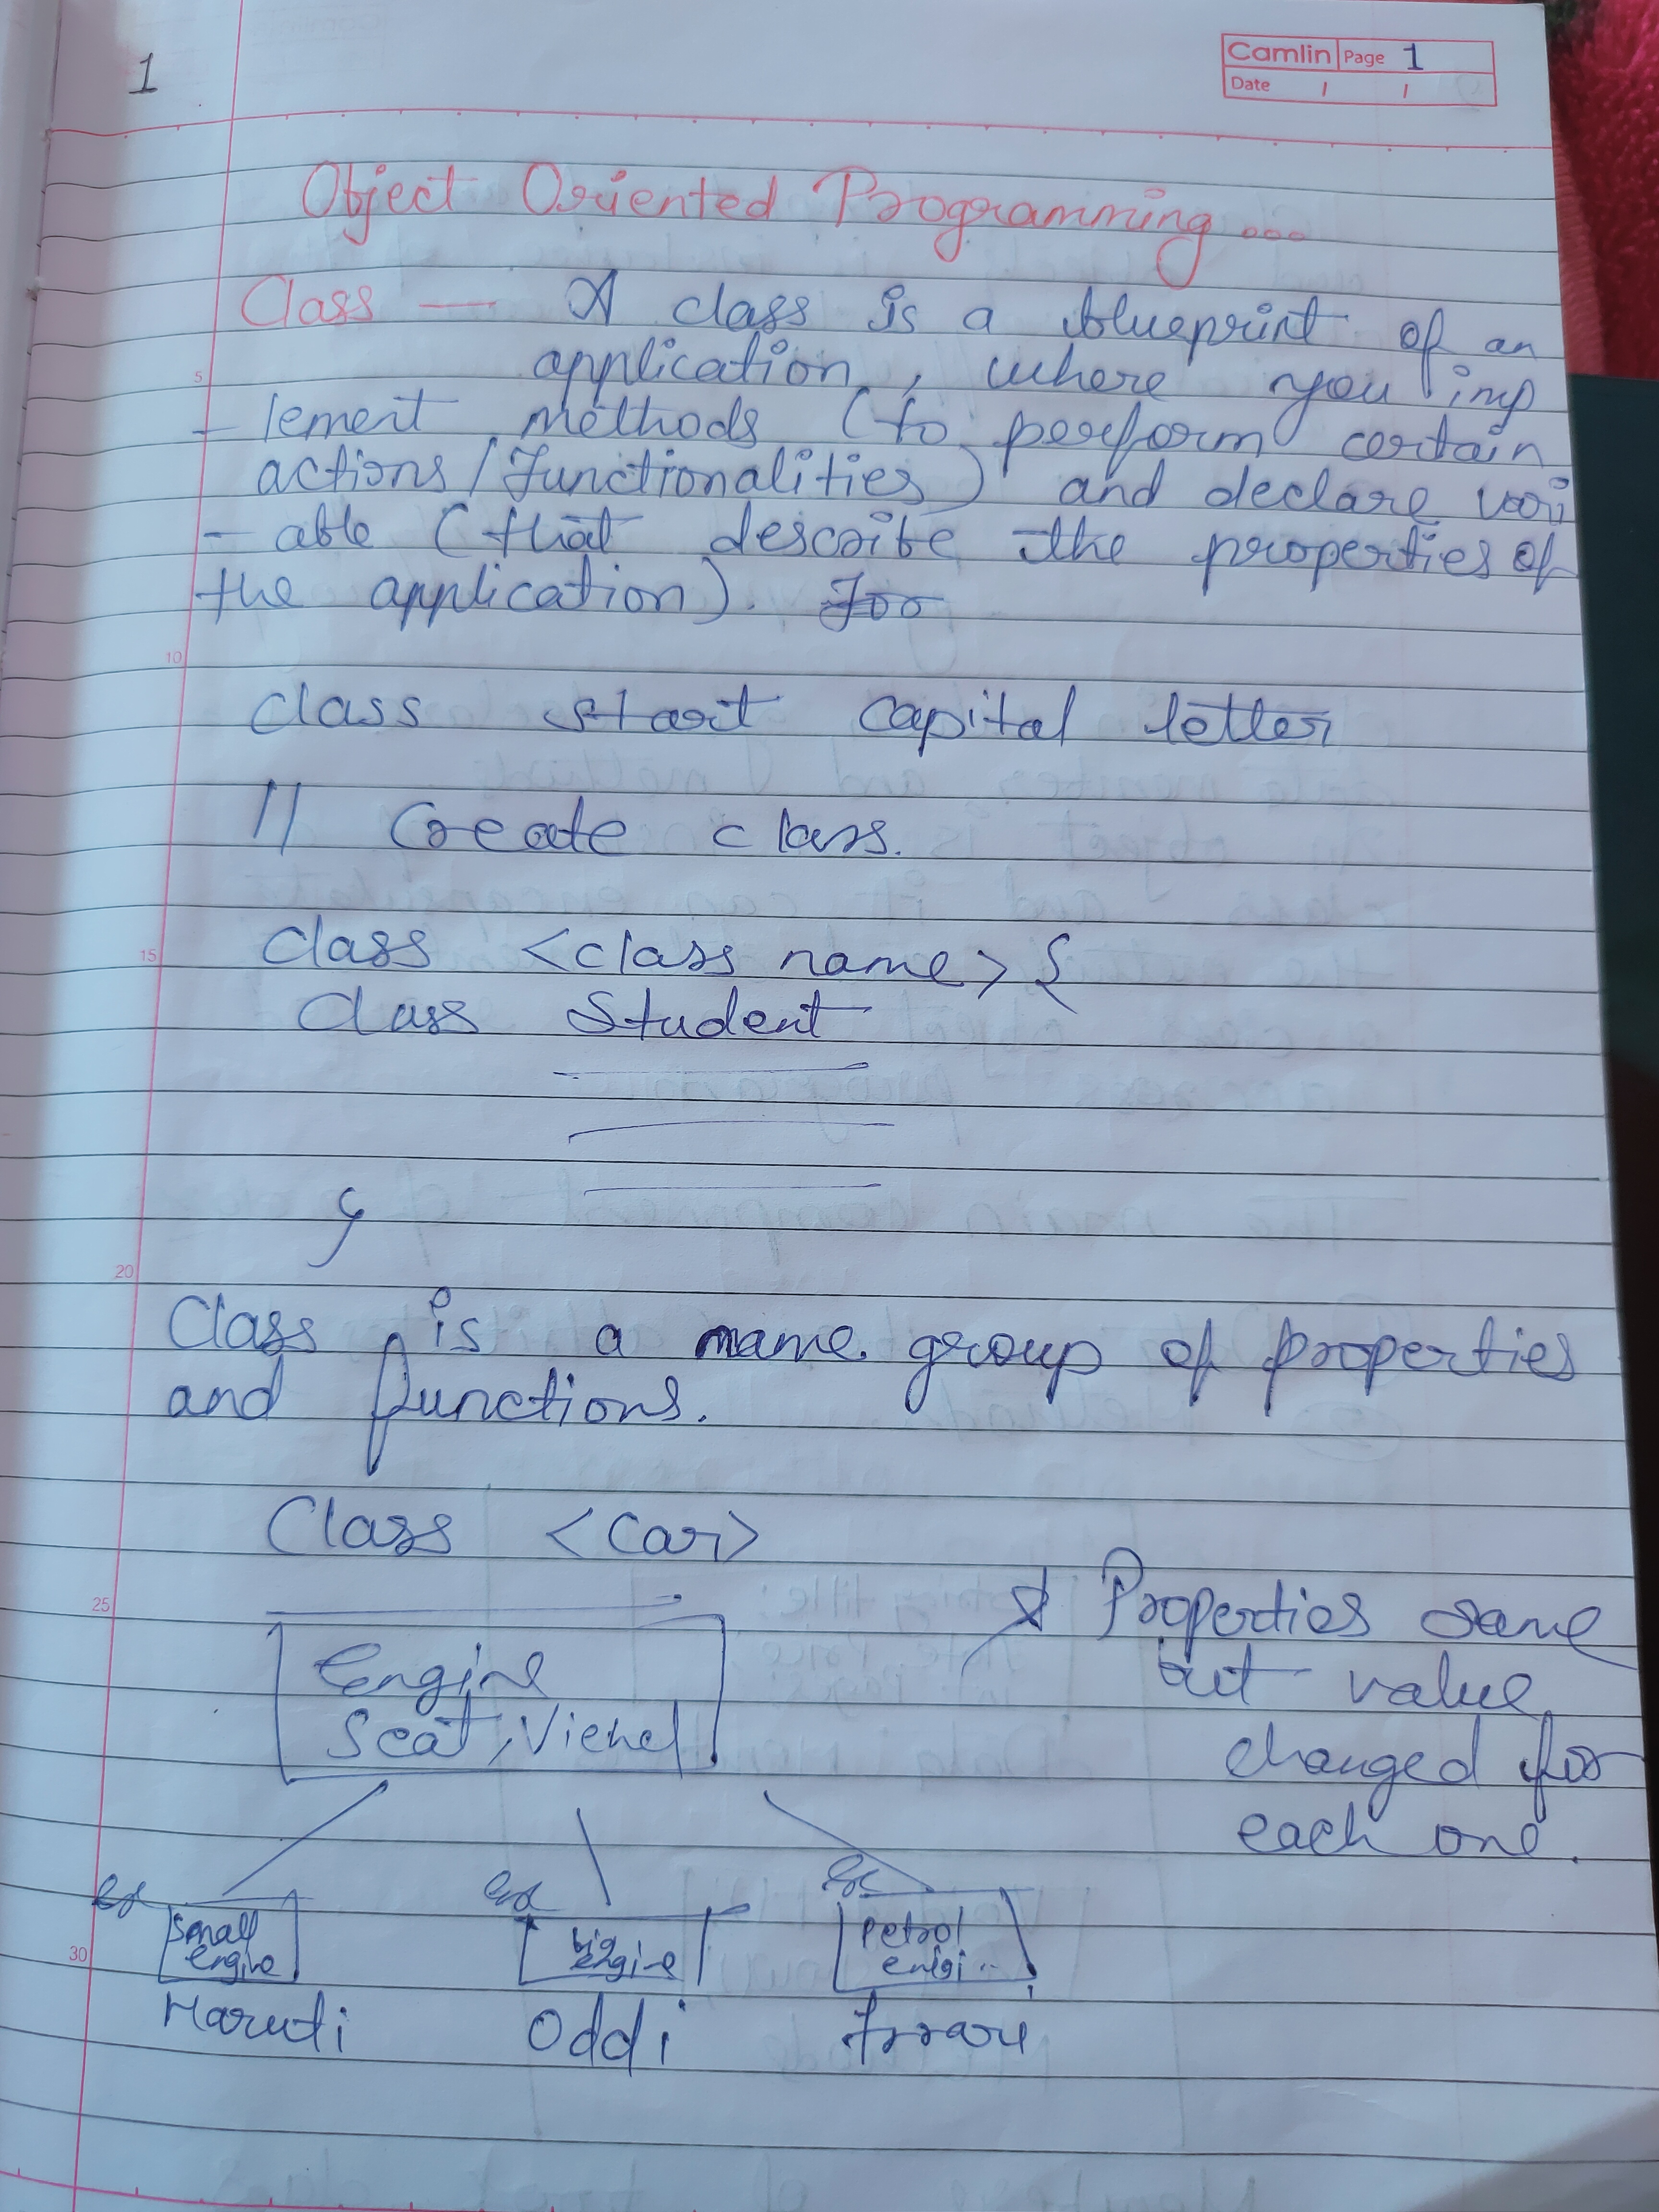 1
Camlin Page 1
Date / /
Object Oriented Programming ...
Class — A class is a blueprint of an
application, where you imp
- lement methods (to perform certain
actions/functionalities) and declare vari
- able (that describe the properties of
the application). For
class start capital letter
// Create class.
class <class name> {
class Student
}
Class is a name group of properties
and functions.
Class <Car>
Properties same
but value
changed for
each one.
Engine
Seat,
small
engine
big
engine
Petrol
Maruti Oddi
5
10
15
20
25
30